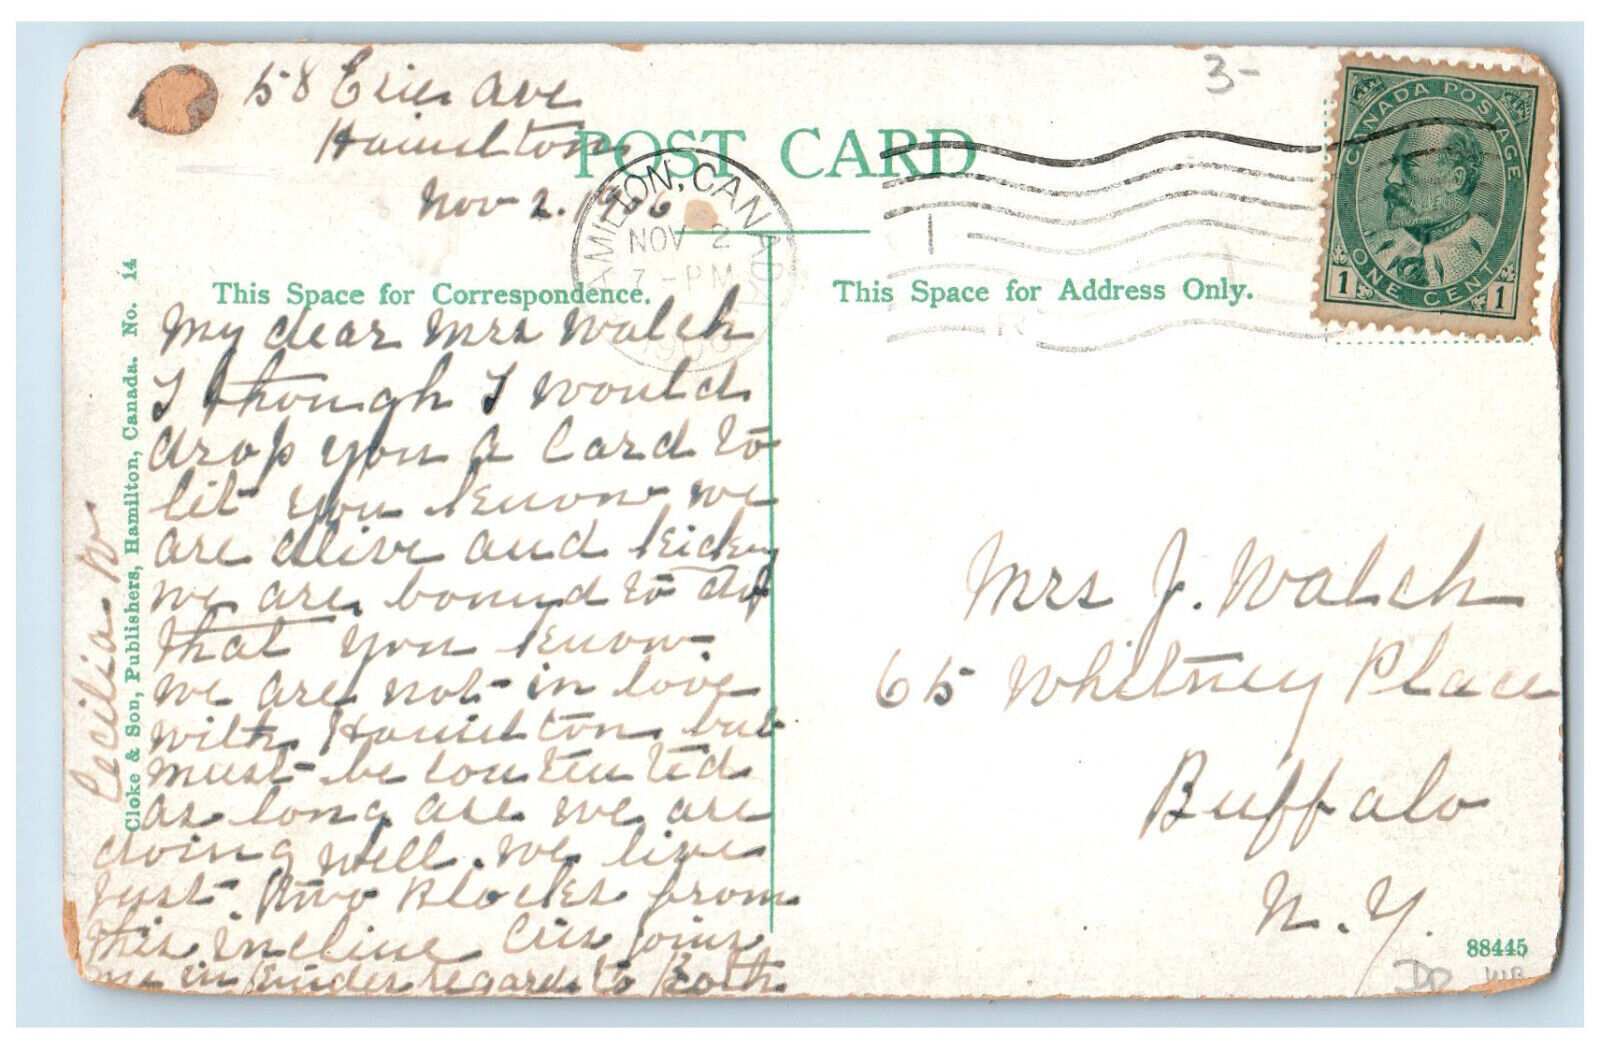 58 Erie Ave
Hamilton
Nov 2. 1906
POST CARD
HAMILTON, CANADA
NOV 2
7-PM
1906
3-
CANADA POSTAGE
ONE CENT
1 1
This Space for Correspondence.
This Space for Address Only.
My dear Mrs Walsh
I though I would
drop you a Card to
let you know we
are alive and
we are bound to
that you know.
we are not in love
with Hamilton but
must be contented
as long as we are
doing well. we live
just two Blocks from
this incline joins
me in kinder regards to Both
Cecilia W
Cloke & Son, Publishers, Hamilton, Canada. No. 14
Mrs J. Walsh
65 Whitney Place
Buffalo
N.Y.
88445